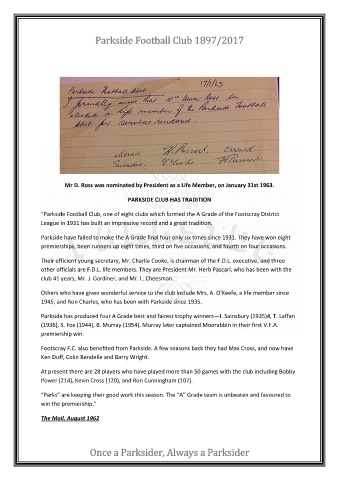 Parkside Football Club 1897/2017
17/1/63
Parkside Football Club
I formally move that Mr Down Ross be
elected a life member of the Parkside Football
Club for services rendered
Moved H. Pascarl. Carried
Seconded C Cooke H Pascarl
Mr D. Ross was nominated by President as a Life Member, on January 31st 1963.
PARKSIDE CLUB HAS TRADITION
"Parkside Football Club, one of eight clubs which formed the A Grade of the Footscray District
League in 1931 has built an impressive record and a great tradition.
Parkside have failed to make the A Grade final four only six times since 1931. They have won eight
premierships, been runners up eight times, third on five occasions, and fourth on four occasions.
Their efficient young secretary, Mr. Charlie Cooke, is chairman of the F.D.L. executive, and three
other officials are F.D.L. life members. They are President Mr. Herb Pascarl, who has been with the
club 41 years, Mr. J. Gardiner, and Mr. L. Cheesman.
Others who have given wonderful service to the club include Mrs. A. O'Keefe, a life member since
1945, and Ron Charles, who has been with Parkside since 1935.
Parkside has produced four A Grade best and fairest trophy winners—J. Sainsbury (1935)4, T. Laffan
(1936), S. Fox (1944), B. Murray (1954). Murray later captained Moorabbin in their first V.F.A.
premiership win.
Footscray F.C. also benefited from Parkside. A few seasons back they had Max Cross, and now have
Ken Duff, Colin Bendelle and Barry Wright.
At present there are 28 players who have played more than 50 games with the club including Bobby
Power (214), Kevin Cross (120), and Ron Cunningham (107).
"Parks" are keeping their good work this season. The "A" Grade team is unbeaten and favoured to
win the premiership."
The Mail, August 1962
Once a Parksider, Always a Parksider